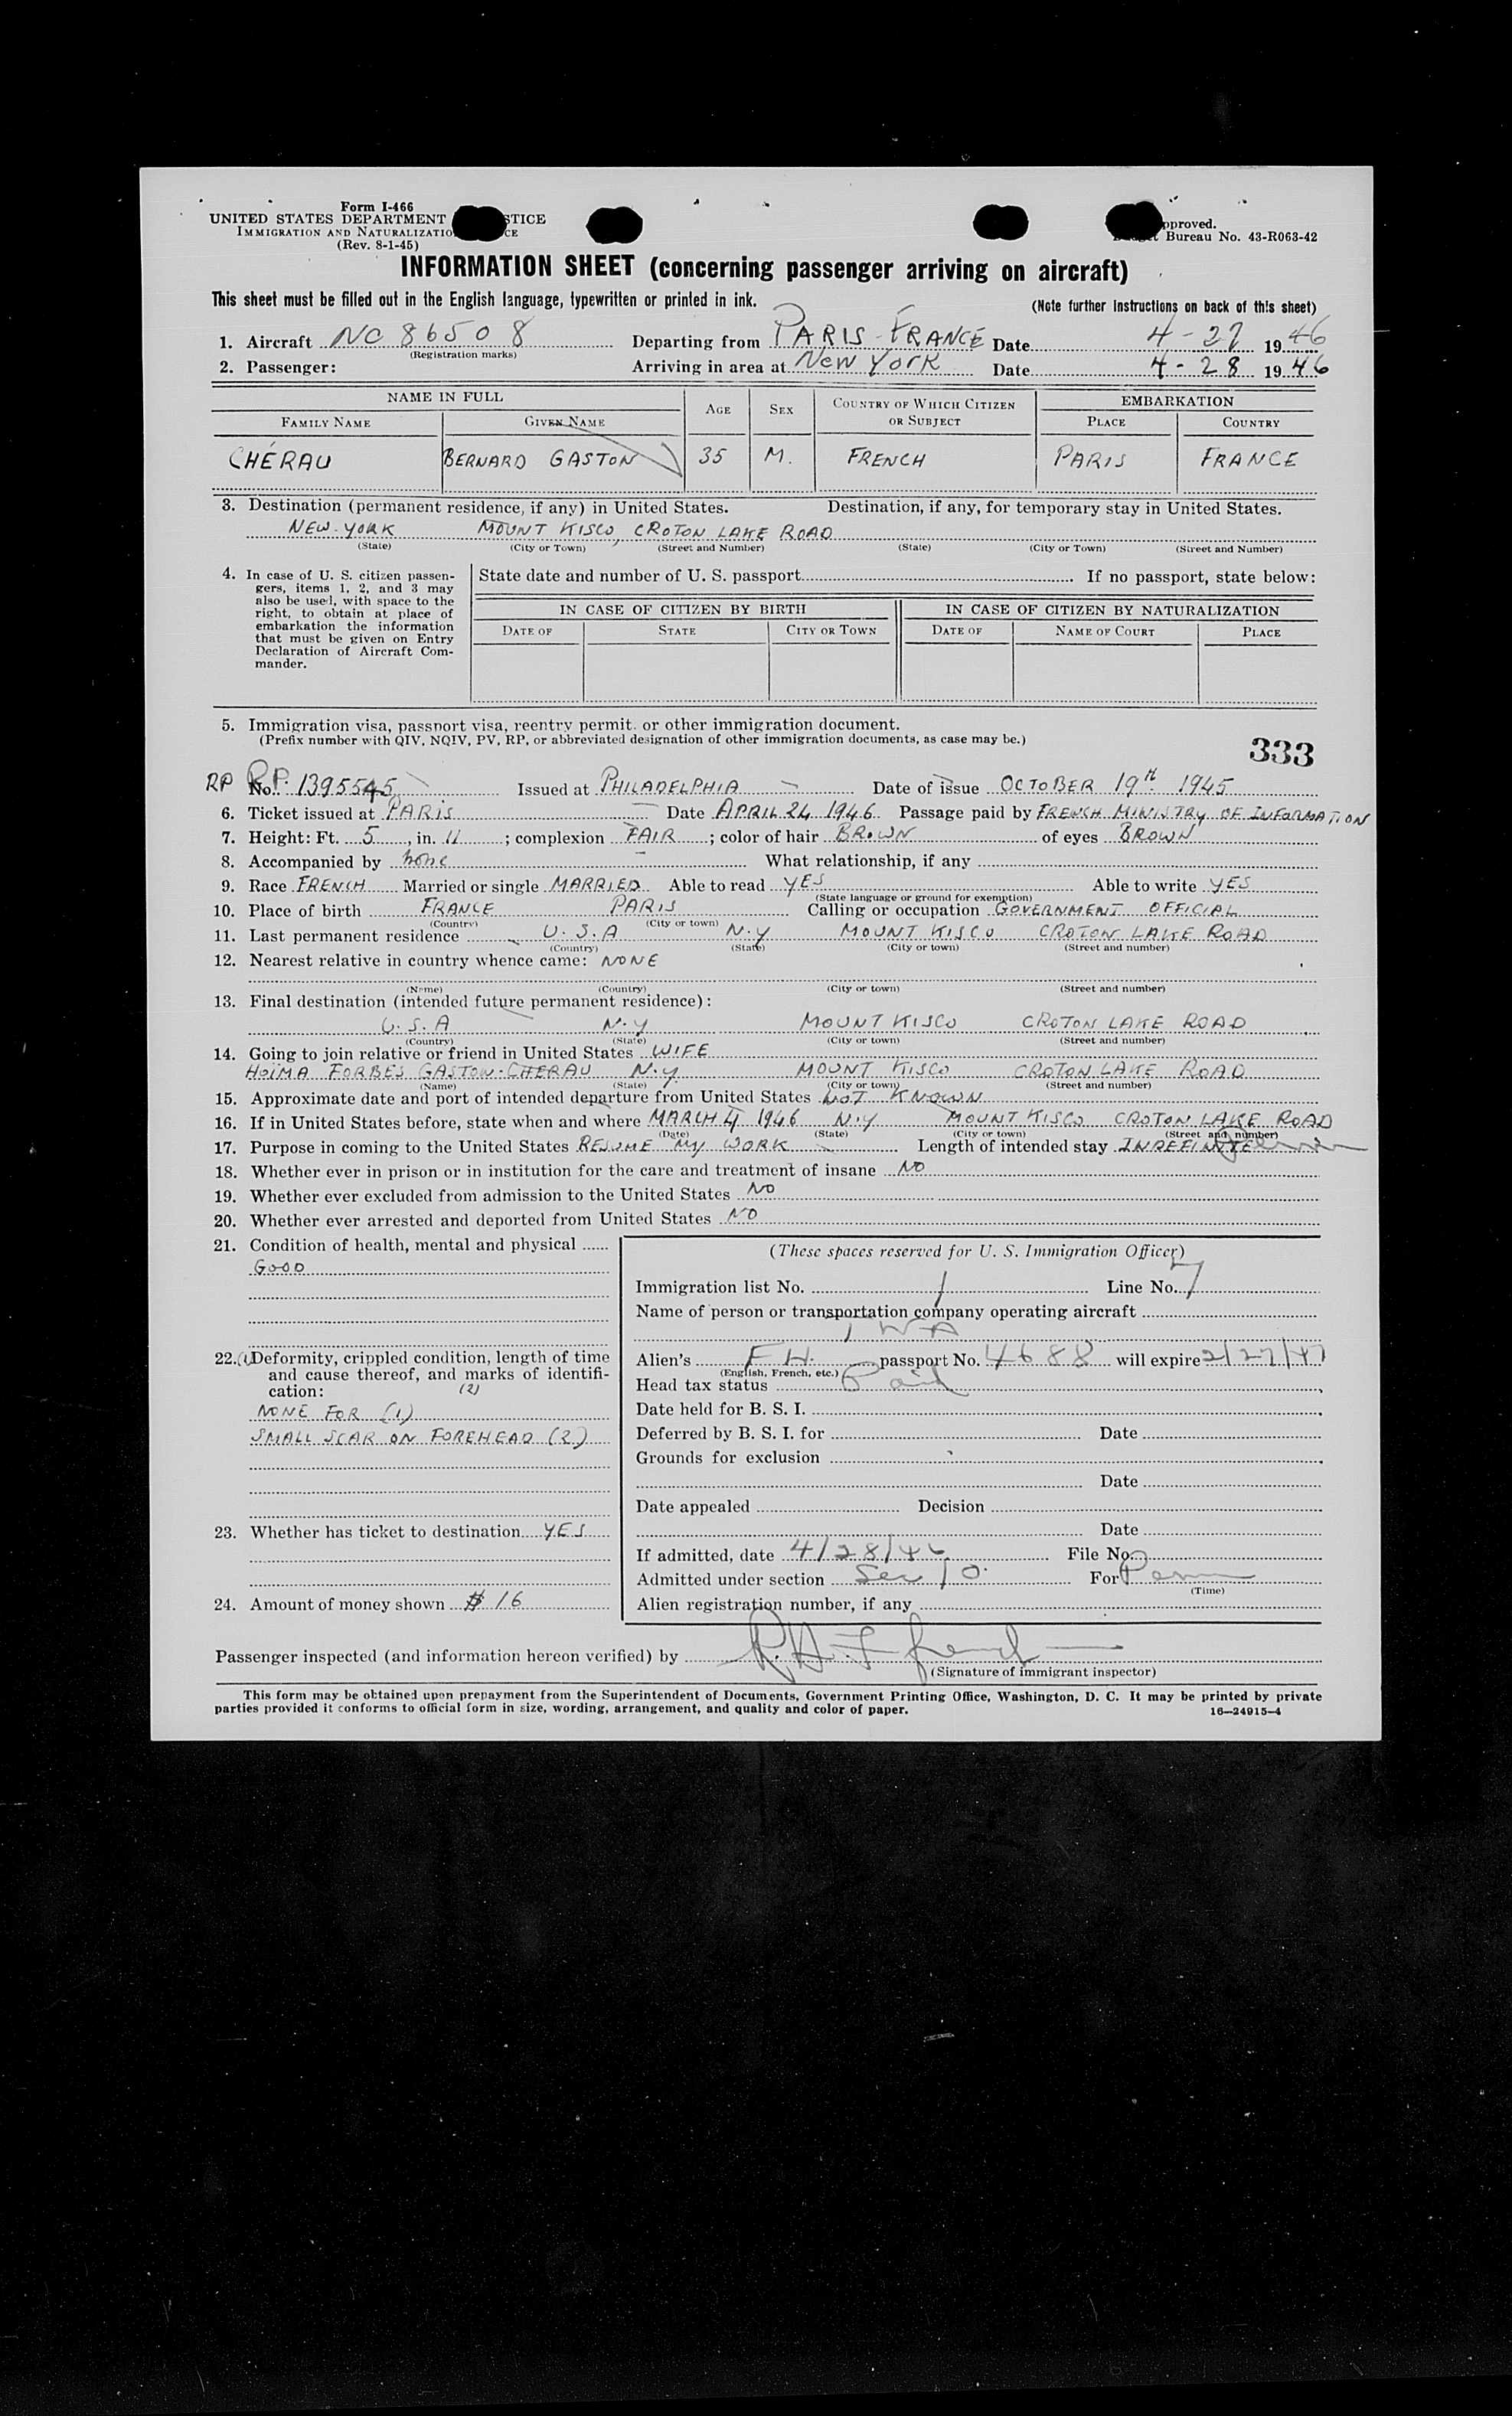 Form I-466
UNITED STATES DEPARTMENT STICE
IMMIGRATION AND NATURALIZATIO CE
(Rev. 8-1-45)
pproved.
Bureau No. 43-R063-42
INFORMATION SHEET (concerning passenger arriving on aircraft)
This sheet must be filled out in the English language, typewritten or printed in ink.
(Note further instructions on back of this sheet)
1. Aircraft NC 86508 Departing from PARIS-FRANCE Date 4-27 1946
(Registration marks)
2. Passenger: Arriving in area at NEW YORK Date 4-28 1946
NAME IN FULL AGE SEX COUNTRY OF WHICH CITIZEN OR SUBJECT EMBARKATION
FAMILY NAME GIVEN NAME PLACE COUNTRY
CHÉRAU BERNARD GASTON 35 M. FRENCH PARIS FRANCE
3. Destination (permanent residence, if any) in United States. Destination, if any, for temporary stay in United States.
NEW-YORK MOUNT KISCO, CROTON LAKE ROAD
(State) (City or Town) (Street and Number) (State) (City or Town) (Street and Number)
4. In case of U. S. citizen passen-
gers, items 1, 2, and 3 may
also be used, with space to the
right, to obtain at place of
embarkation the information
that must be given on Entry
Declaration of Aircraft Com-
mander.
State date and number of U. S. passport If no passport, state below:
IN CASE OF CITIZEN BY BIRTH IN CASE OF CITIZEN BY NATURALIZATION
DATE OF STATE CITY OR TOWN DATE OF NAME OF COURT PLACE
5. Immigration visa, passport visa, reentry permit, or other immigration document.
(Prefix number with QIV, NQIV, PV, RP, or abbreviated designation of other immigration documents, as case may be.)
333
RP RP. No. 1395545 Issued at PHILADELPHIA Date of issue OCTOBER 19th 1945
6. Ticket issued at PARIS Date APRIL 24 1946 Passage paid by FRENCH MINISTRY OF INFORMATION
7. Height: Ft. 5, in. 11; complexion FAIR; color of hair BROWN of eyes BROWN
8. Accompanied by none What relationship, if any
9. Race FRENCH Married or single MARRIED Able to read YES Able to write YES
(State language or ground for exemption)
10. Place of birth FRANCE PARIS Calling or occupation GOVERNMENT OFFICIAL
(Country) (City or town)
11. Last permanent residence U.S.A N.Y MOUNT KISCO CROTON LAKE ROAD
(Country) (State) (City or town) (Street and number)
12. Nearest relative in country whence came: NONE
(Name) (Country) (City or town) (Street and number)
13. Final destination (intended future permanent residence):
U.S.A N.Y MOUNT KISCO CROTON LAKE ROAD
(Country) (State) (City or town) (Street and number)
14. Going to join relative or friend in United States WIFE
FORBES GASTON-CHERAU N.Y. MOUNT KISCO CROTON LAKE ROAD
(Name) (State) (City or town) (Street and number)
15. Approximate date and port of intended departure from United States NOT KNOWN
16. If in United States before, state when and where MARCH 4 1946 N.Y MOUNT KISCO CROTON LAKE ROAD
(Date) (State) (City or town) (Street and number)
17. Purpose in coming to the United States RESUME MY WORK Length of intended stay INDEFINITE
18. Whether ever in prison or in institution for the care and treatment of insane NO
19. Whether ever excluded from admission to the United States NO
20. Whether ever arrested and deported from United States NO
21. Condition of health, mental and physical
GOOD
22. (1) Deformity, crippled condition, length of time
and cause thereof, and marks of identifi-
cation: (2)
NONE FOR (1)
SMALL SCAR ON FOREHEAD (2)
23. Whether has ticket to destination YES
24. Amount of money shown $ 16
(These spaces reserved for U. S. Immigration Officer)
Immigration list No. 1 Line No. 7
Name of person or transportation company operating aircraft
TWA
Alien's passport No. 4688 will expire 2/27/47
(English, French, etc.)
Head tax status Paid
Date held for B. S. I.
Deferred by B. S. I. for Date
Grounds for exclusion
Date
Date appealed Decision
Date
If admitted, date 4/28/46 File No.
Admitted under section Sec 10. For Perm
(Time)
Alien registration number, if any
Passenger inspected (and information hereon verified) by
(Signature of immigrant inspector)
This form may be obtained upon prepayment from the Superintendent of Documents, Government Printing Office, Washington, D. C. It may be printed by private
parties provided it conforms to official form in size, wording, arrangement, and quality and color of paper.
16—24915-4